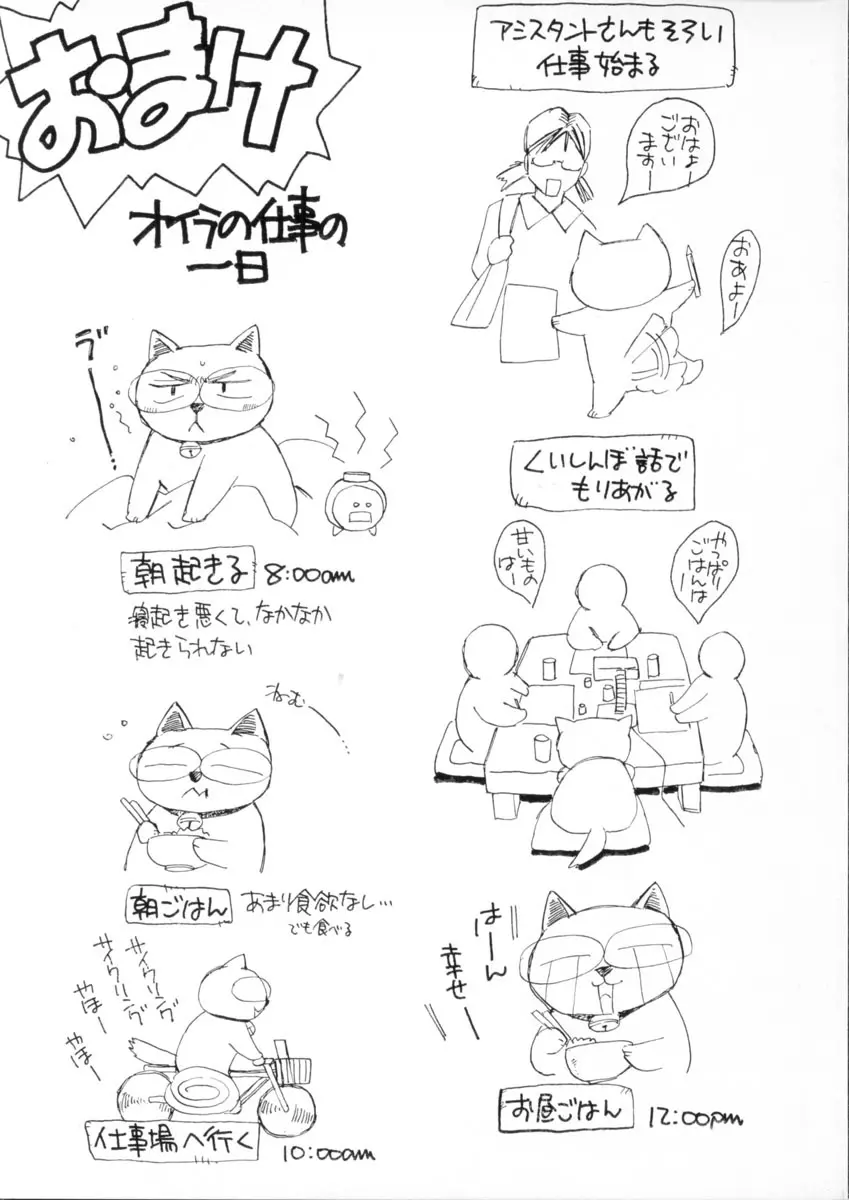 おまけ
オイラの仕事の
一日
ヴー…
朝起きる 8:00am
寝起き悪くて、なかなか
起きられない
ねむ…
朝ごはん あまり食欲なし…
でも食べる
サイクリング
サイクリング
やほー
やほー
仕事場へ行く 10:00am
アシスタントさんもそろい
仕事始まる
おはよー
ござい
ますー
おあよー
くいしんぼ話で
もりあがる
やっぱり
ごはんは
甘いもの
はー
はーん
幸せー
お昼ごはん 12:00pm